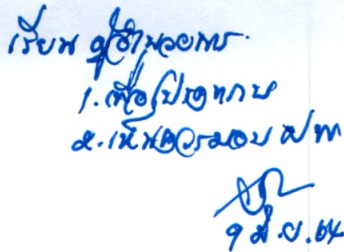 เรียน ผู้อำนวยการ
1. เพื่อโปรดทราบ
2. เห็นควรมอบ
9 มิ.ย. 64